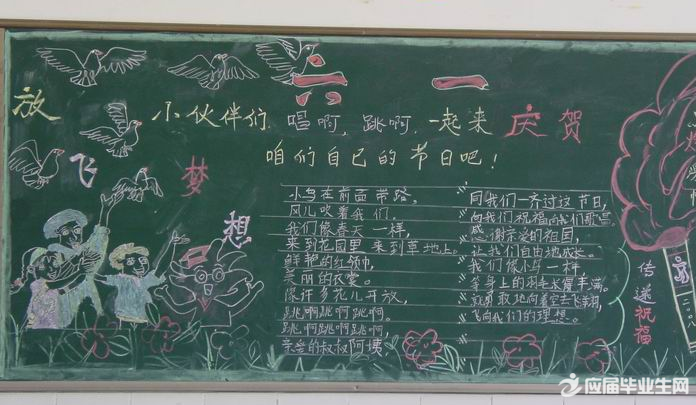 放飞梦想
六一
小伙伴们,唱啊,跳啊,一起来庆贺
咱们自已的节日吧!
小鸟在前面带路,
风儿吹着我们,
我们像春天一样,
来到花园里来到草地上。
鲜艳的红领巾,
美丽的衣裳。
像许多花儿开放,
跳啊跳啊跳啊,
跳啊跳啊跳啊,
亲爱的叔叔阿姨
同我们一齐讨这节日,
向我们祝福向我们歌唱,
感谢亲爱的祖国,
让我们自由地成长。
我们像小鸟一样,
等身上的羽毛长丰满。
就勇敢地向着空去飞翔,
飞向我们的理想。
传递祝福
应届毕业生网